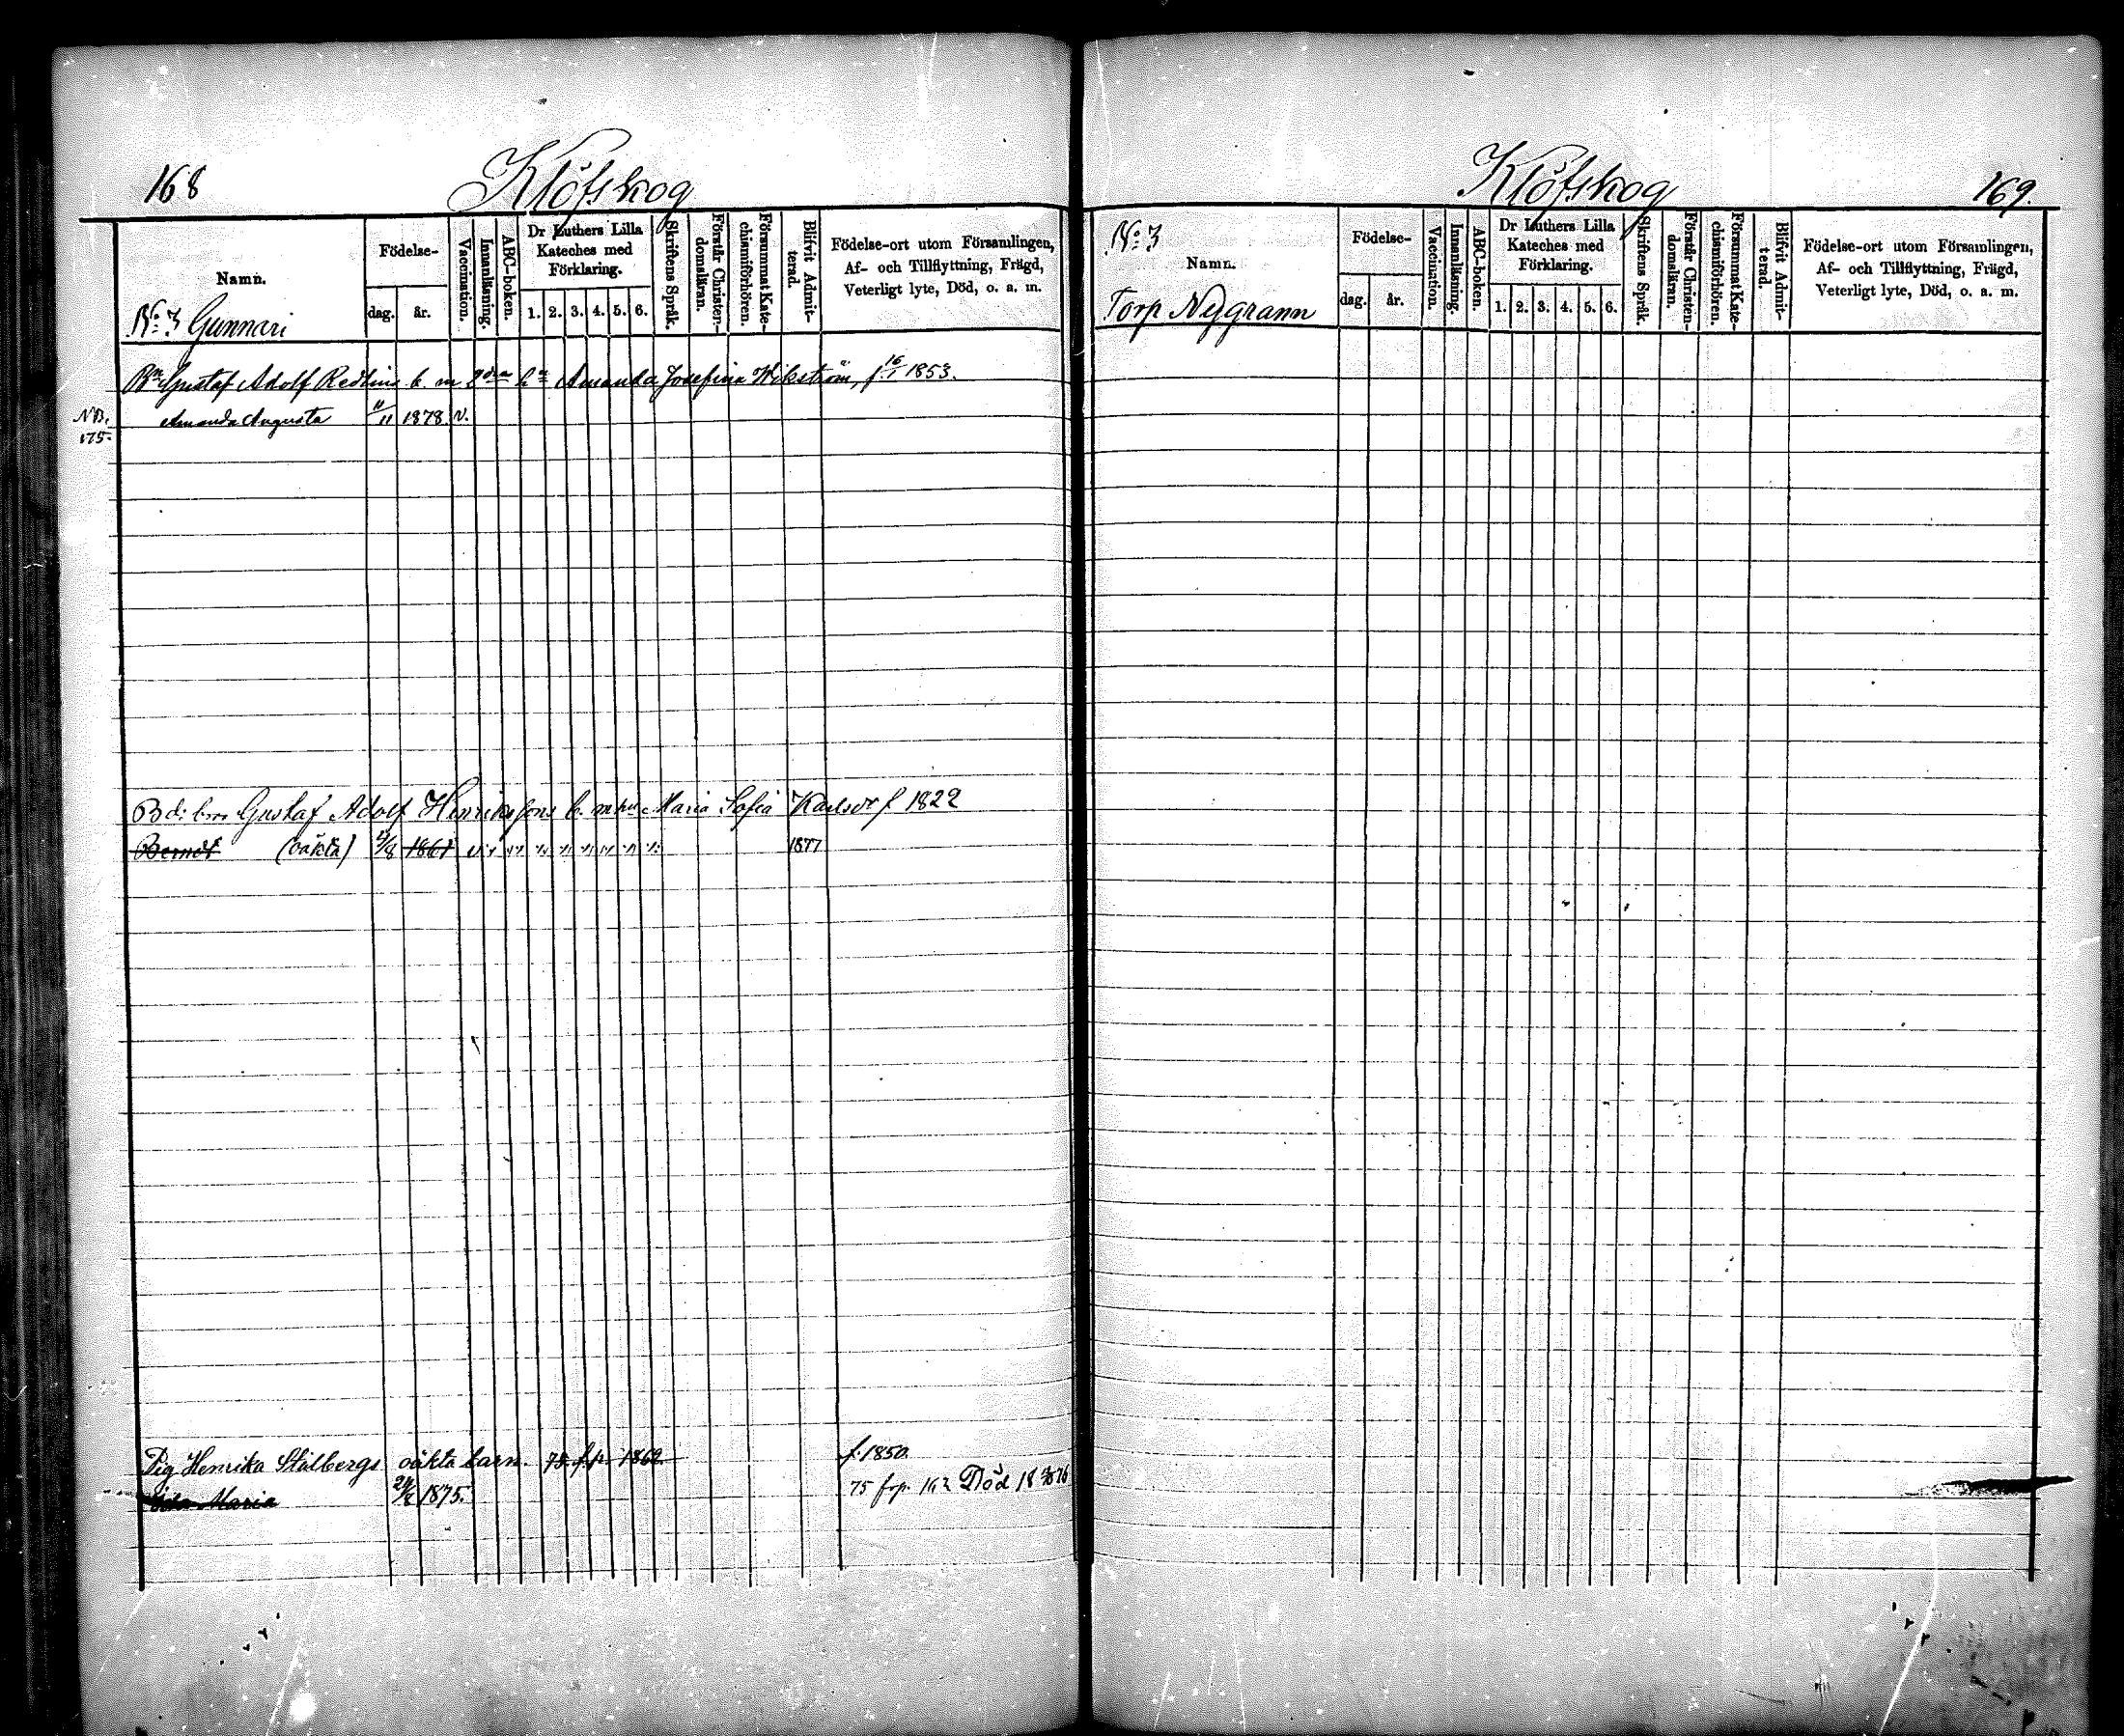 168
Klöfskog
Namn.
Födelse-
dag.
år.
Vaccination.
Innanläsning.
ABC-boken.
Dr Luthers Lilla
Kateches med
Förklaring.
1. 2. 3. 4. 5. 6.
Skriftens Språk.
Förstår Christen-
domsläran.
Försummat Kate-
chismiförhören.
Blifvit Admit-
terad.
Födelse-ort utom Församlingen,
Af- och Tillflyttning, Frägd,
Veterligt lyte, Död, o. a. m.
No: 3 Gunnari
Gustaf Adolf Redlins b. m Amanda Josefina Wikström, f 16/1 1853.
NB. 175
Amanda Augusta 11/11 1878. v.
Gustaf Adolf Henrikssons b. m hu Maria Sofia Karlsdr f 1822
Berndt (oäkta) 4/8 1861 v 1877
Pig Henrika Stålbergs oäkta barn. 75. f.p. 1862 f. 1850.
Maria 24/6 1875. 75 frp. 162 Död 18
Klöfskog
169.
No: 3
Namn.
Torp Nygrann
Födelse-
dag.
år.
Vaccination.
Innanläsning.
ABC-boken.
Dr Luthers Lilla
Kateches med
Förklaring.
1. 2. 3. 4. 5. 6.
Skriftens Språk.
Förstår Christen-
domsläran.
Försummat Kate-
chismiförhören.
Blifvit Admit-
terad.
Födelse-ort utom Församlingen,
Af- och Tillflyttning, Frägd,
Veterligt lyte, Död, o. a. m.